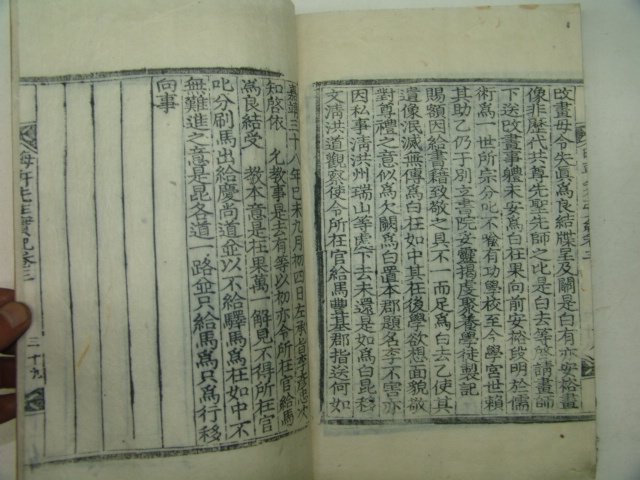 改畫毋令失眞爲良結牒呈及關是白有亦安裕畫
像非歷代共尊先聖先師之比是白去等啓請畫師
下送改畫事體未安爲白在果向前安裕段明於儒
術爲一世所宗分叱不喩有功學校至今學宮世賴
其助乙仍于別立書院文
賜額因給書籍致敬之具不一而足爲白去乙使其
遺像泯滅無傳爲白在如中其在後學欲想面貌敬
對尊禮之意似爲欠闕爲白置本郡題名李不害亦
因私事淸洪洲瑞山等處下去未還是如爲白昆移
文淸洪道觀察使令所在官給馬豊基郡指送何如
嘉靖三十八年己未九月初四日左承旨
知啓依允教事是去有等以
爲良結受教本意是在果萬一解見不得所在官
叱分刷馬出給慶尚道並以不給驛馬爲在如中不
無難進之意是昆各道一路並只給馬爲只爲行移
向事
晦軒先生實紀卷三
三十九